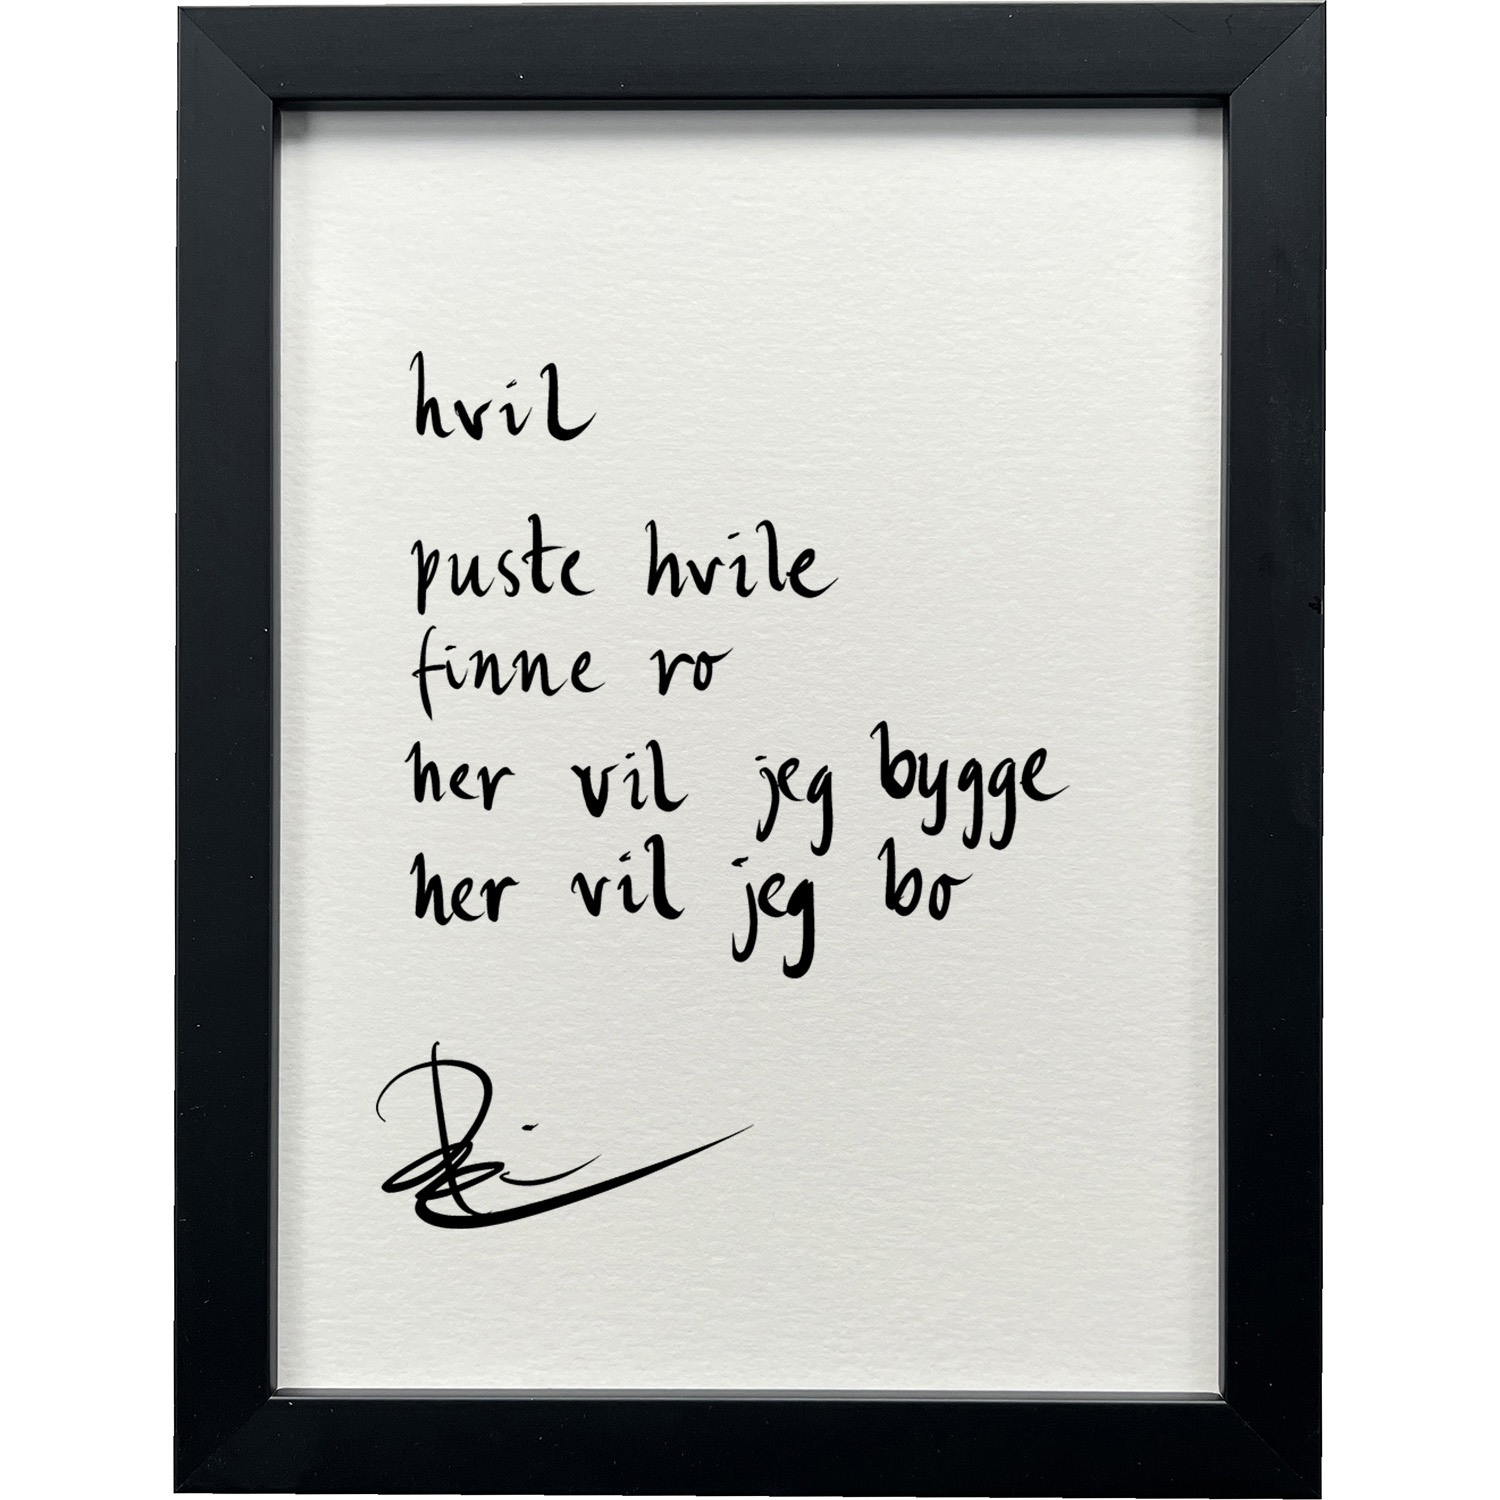 hvil
puste hvile
finne ro
her vil jeg bygge
her vil jeg bo